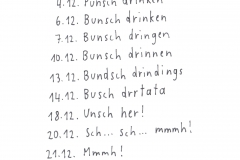 4.12. Punsch drinken
6.12. Bunsch drinken
7.12. Bunsch dringen
10.12. Bunsch drinnen
13.12. Bundsch drindings
14.12. Busch drrtata
18.12. Unsch her!
20.12. Sch... sch... mmmh!
21.12. Mmmh!